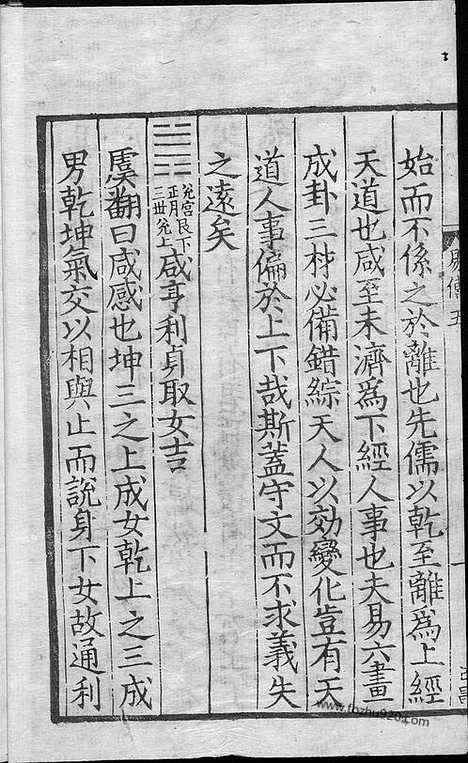 始而不係之於離也先儒以乾至離為上經
天道也咸至未濟為下經人事也夫易六畫
成卦三材必備錯綜天人以効變化豈有天
道人事偏於上下哉斯蓋守文而不求義失
之遠矣
䷞兌宮艮下
正月三世兌上咸亨利貞取女吉
虞翻曰咸感也坤三之上成女乾上之三成
男乾坤氣交以相與止而說男下女故通利
www.fozhu920.com